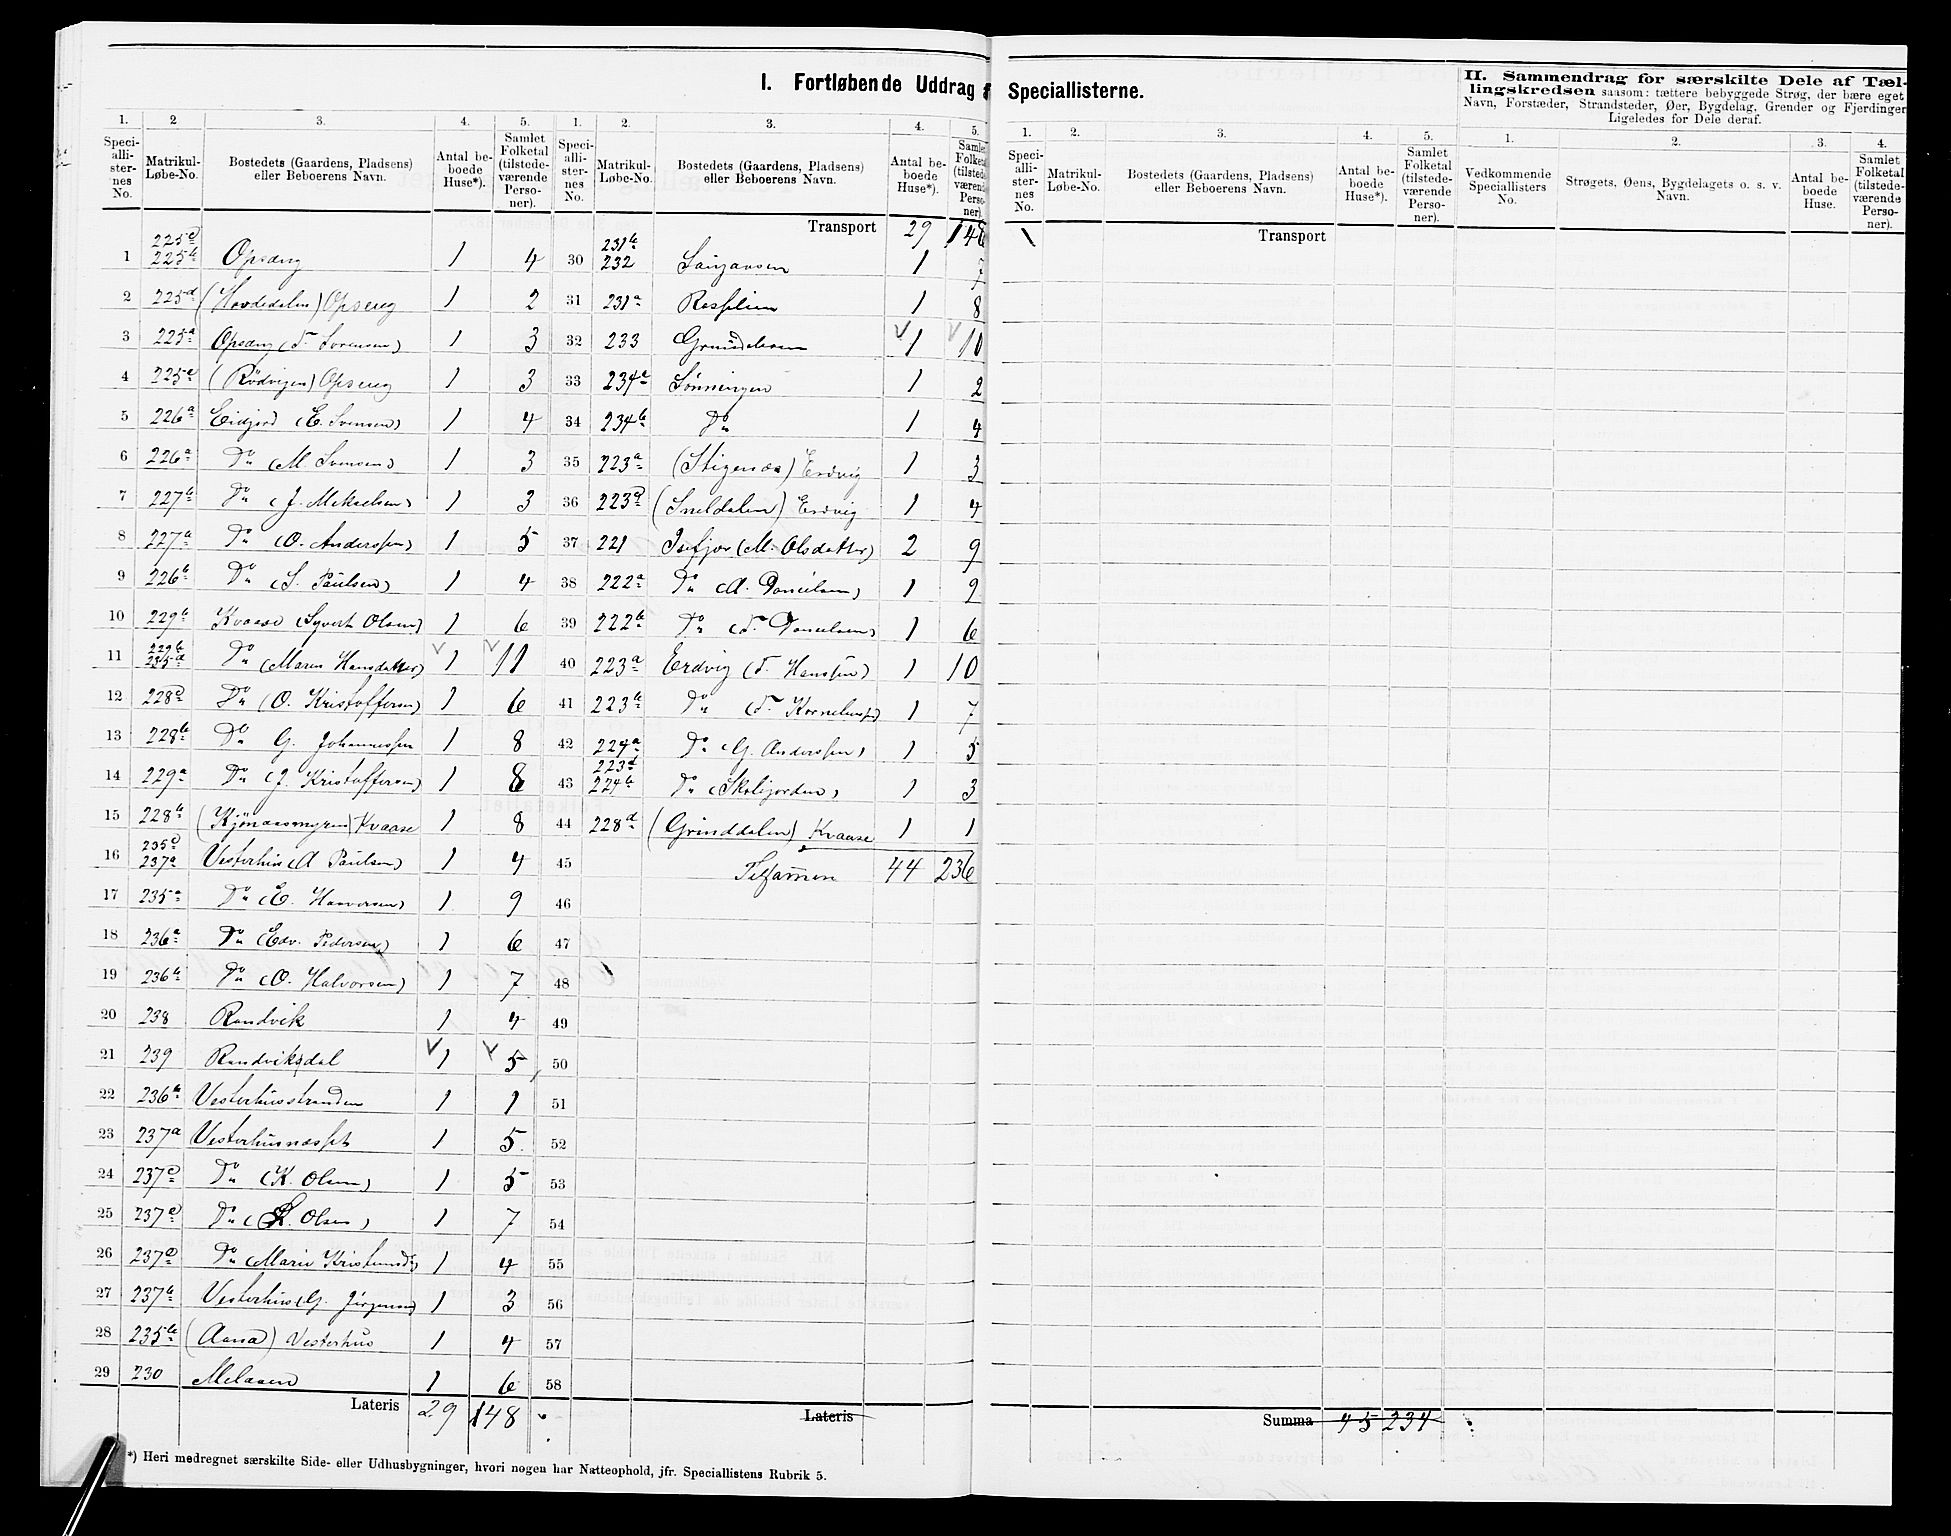 I. Fortløbende Uddrag af Speciallisterne.
II. Sammendrag for særskilte Dele af Tællingskredsen saasom: tættere bebyggede Strøg, der bære eget
Navn, Forstæder, Strandsteder, Øer, Bygdelag, Grender og Fjerdinger
Ligeledes for Dele deraf.
1. 2 3. 4. 5. 1. 2. 3. 4. 5.
Speciallisternes No. Matrikul-Løbe-No. Bostedets (Gaardens, Pladsens) eller Beboerens Navn. Antal beboede Huse*). Samlet Folketal (tilstedeværende Personer).
Speciallisternes No. Matrikul-Løbe-No. Bostedets (Gaardens, Pladsens) eller Beboerens Navn. Antal beboede Huse*). Samlet Folketal (tilstedeværende Personer).
1 225c 225b Opsang 1 4
2 225d (Hovdedalen) Opsang 1 2
3 225a Opsang (T. Sorensen) 1 3
4 225e (Rödvigen) Opsang 1 3
5 226a Eidjord (E. Svensen) 1 4
6 226a Do (M. Svensen) 1 3
7 227b Do (J. Mekaelsen) 1 3
8 227a Do (O. Anderssen) 1 5
9 226b Do (S. Paulsen) 1 4
10 229b Kvaase (Syvert Olsen) 1 6
11 229b 235d Do (Maren Hansdatter) 1 11
12 228c Do (O. Kristoffersen) 1 6
13 228b Do G. Johannessen 1 8
14 229a Do (J. Kristoffersen) 1 8
15 228b (Kjönaasmyren) Kvaase 1 8
16 235c 237a Vesterhus (A Paulsen) 1 4
17 235a Do (E. Haaversen) 1 9
18 236a Do (Edv. Pedersen) 1 6
19 236b Do (O. Halvorsen) 1 7
20 238 Randvik 1 4
21 239 Randviksdal 1 5
22 236b Vesterhusstranden 1 1
23 237a Vesterhusnæsset 1 5
24 237c Do (K. Olsen) 1 5
25 237e Do (L. Olsen) 1 7
26 237d Do (Marie Kristensd) 1 4
27 237b Vesterhus (G. Jörgensen) 1 3
28 235b (Aana) Vesterhus 1 4
29 230 Melaaen 1 6
Lateris 29 148
Transport 29 148
30 231b 232 1 7
31 231a Rosselien 1 8
32 233 1 10
33 234a Lönningen 1 2
34 234b Do 1 4
35 223a (Stigenæs) Erdvig 1 3
36 223d (Sneldalen) Erdvig 1 4
37 221 Isefjær (M. Olsdatter) 2 9
38 222a Do (A. Danielsen) 1 9
39 222b Do (T. Danielsen) 1 6
40 223a Erdvig (T. Hanssen) 1 10
41 223b Do (T. Korneliussen) 1 7
42 224a Do (G. Anderssen) 1 5
43 223d 224b Do (Skolejorden) 1 3
44 228d (Grinddalen) Kvaase 1 1
45 Tilsammen 44 236
46
47
48
49
50
51
52
53
54
55
56
57
58
Lateris
*) Heri medregnet særskilte Side- eller Udhusbygninger, hvori nogen har Natteophold, jfr. Speciallistens Rubrik 5.
1. 2. 3. 4. 5. 1. 2. 3. 4.
Speciallisternes No. Matrikul-Løbe-No. Bostedets (Gaardens, Pladsens) eller Beboerens Navn. Antal beboede Huse*). Samlet Folketal (tilstedeværende Personer).
Vedkommende Speciallisters No. Strøgets, Øens, Bygdelagets o. s. v. Navn. Antal beboede Huse. Samlet Folketal (tilstedeværende Personer).
Transport
Summa 45 234